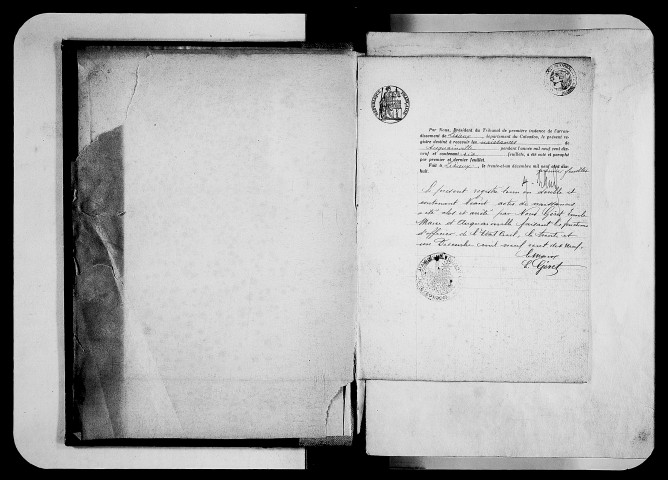 Par Nous, Président du Tribunal de première instance de l'arron-
dissement de Lisieux, département du Calvados, le présent re-
gistre destiné à recevoir les naissances de
Acquainville pendant l'année mil neuf cent dix-
neuf et contenant six feuillets, a été coté et paraphé
par premier et dernier feuillet.
Fait à Lisieux, le trente-et-un décembre mil neuf cent dix-
huit.
Le présent registre tenu en double et
contenant actes de naissances
a été clos et arrêté par Nous Géret
Maire d'Acquainville faisant les fonctions
d'officier de l'Etat Civil, le trente et
un Décembre mil neuf cent dix neuf.
Le maire
E. Géret